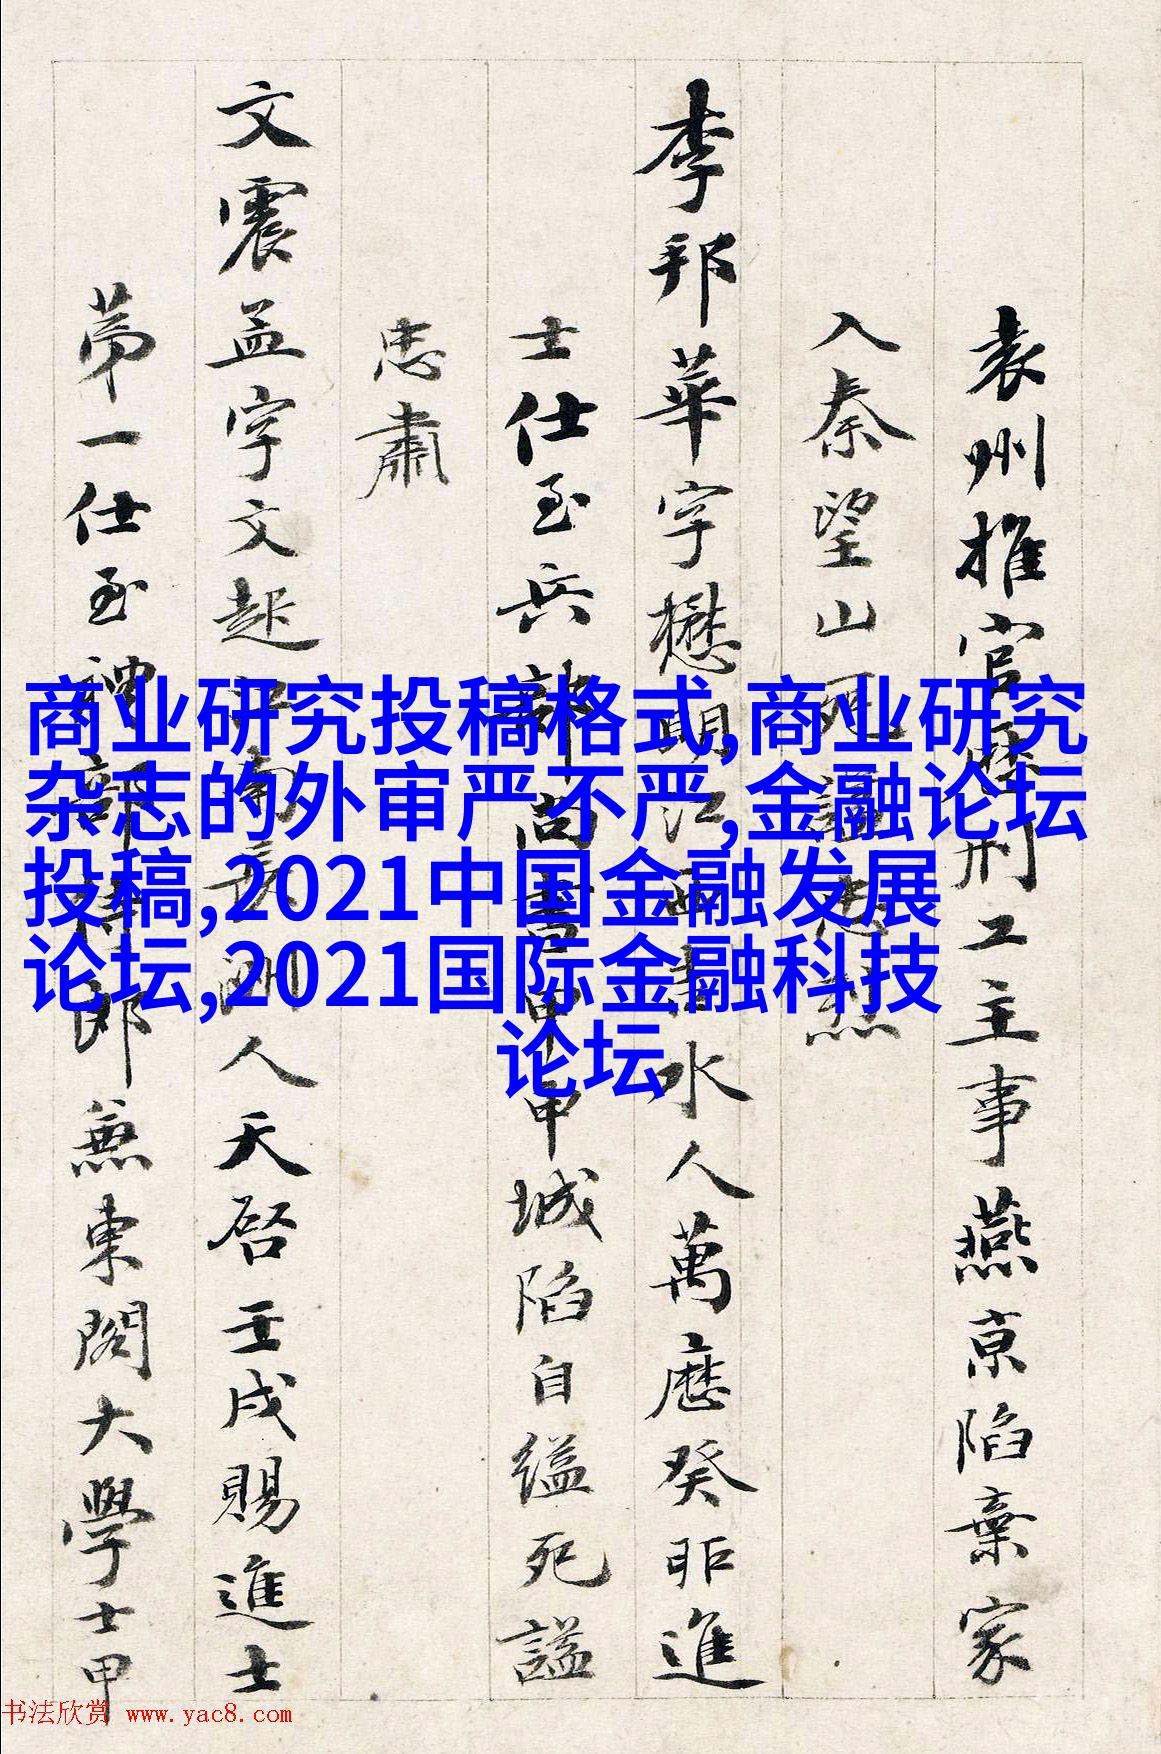 袁州推官陞刑工主事燕京陷棄家
入秦望山死謚忠
李邦華字懋明江西吉水人萬曆癸卯進
士仕至兵部尚書甲申城陷自縊死謚
忠肅
文震孟字文起江南長洲人天啓壬戌賜進士
第一仕至禮部侍郎兼東閣大學士甲
商业研究投稿格式,商业研究
杂志的外审严不严,金融论坛
投稿,2021中国金融发展
论坛,2021国际金融科技
论坛
书法欣赏 www.yac8.com